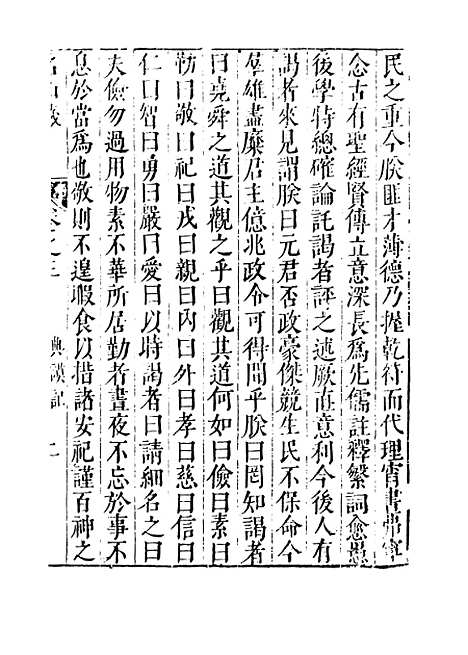 民之重今朕匪才薄德乃握乾符而代理宵晝弗寧
念古有聖經賢傳立意深長爲先儒註釋繁詞愈惑
後學特總確論託謁者評之述厥直意利今後人有
謁者來見謂朕曰元君否政豪傑競生民不保命今
羣雄盡糜居主億兆政令可得聞乎朕曰罔知謁者
曰堯舜之道其觀之乎曰觀其道何如曰儉曰素曰
勤曰敬曰祀曰戎曰親曰內曰外曰孝曰慈曰信曰
仁曰智曰勇曰嚴曰愛曰以時謁者曰請細名之曰
夫儉勿過用物素不華所居勤者晝夜不忘於事不
怠於當爲也敬則不遑暇食以措諸安祀謹百神之
名山藏 卷之三 典謨記 二